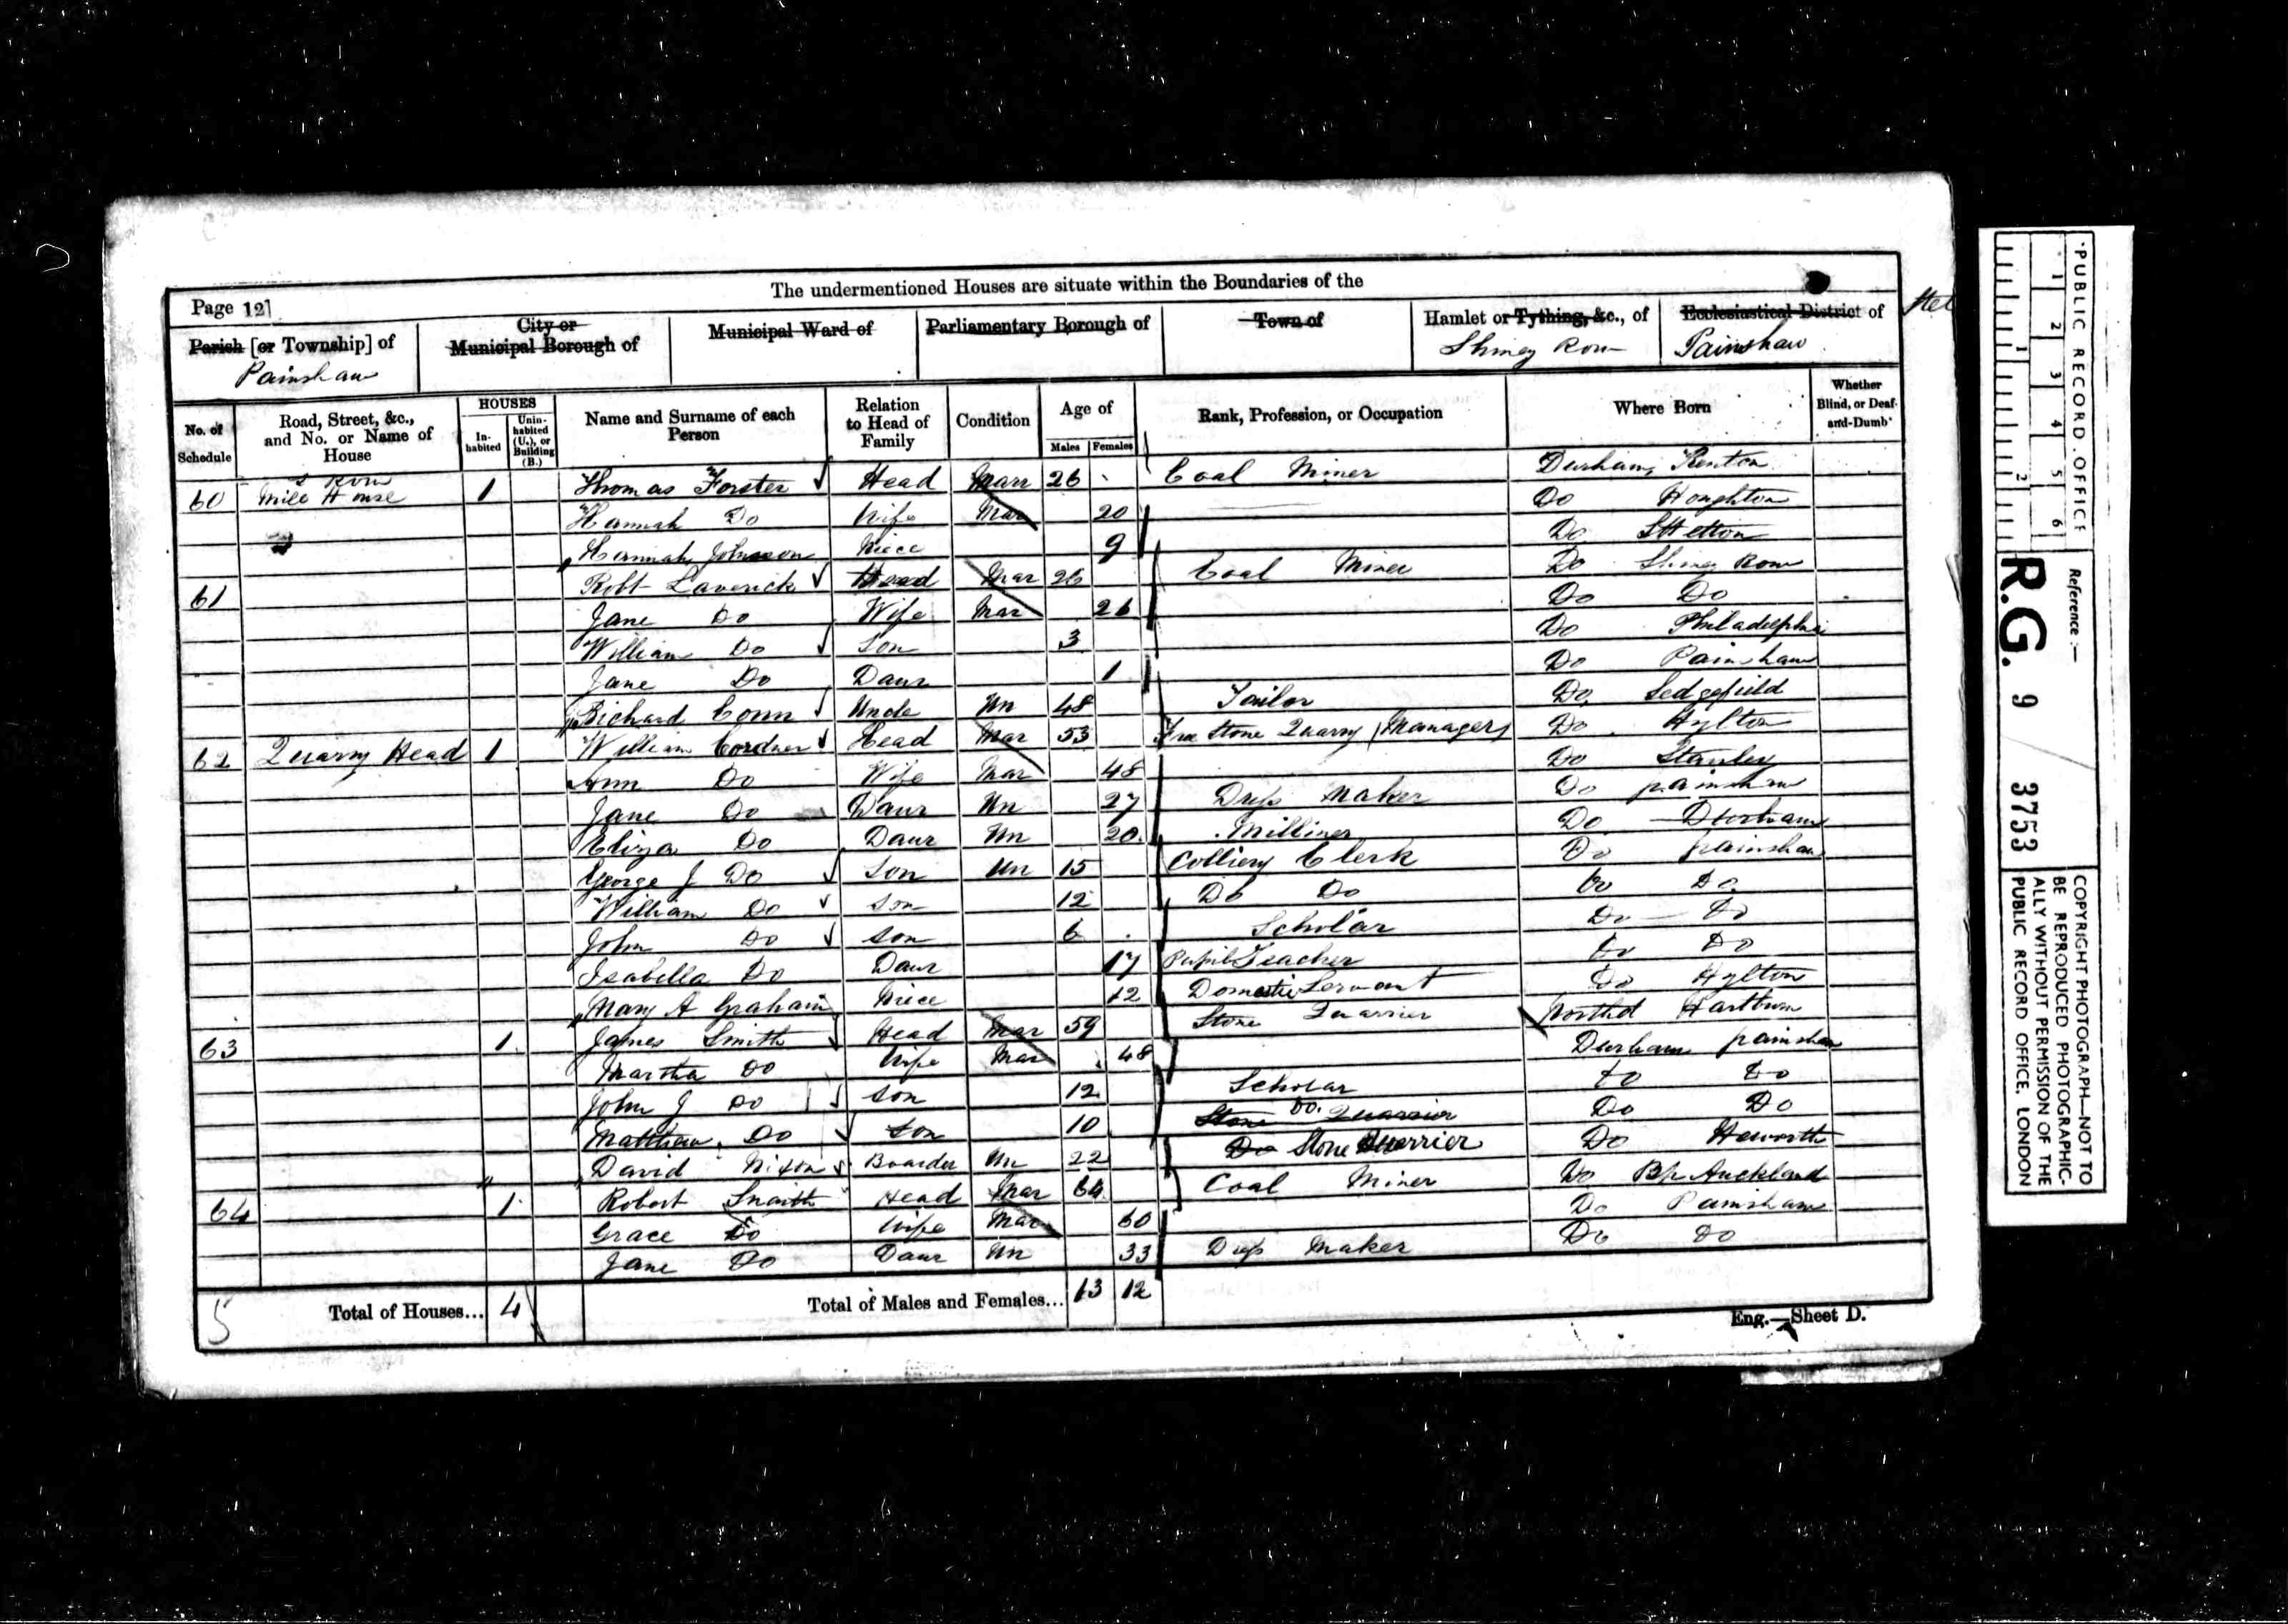 The undermentioned Houses are situate within the Boundaries of the
Page 12
Parish [or Township] of
Painshaw
City or
Municipal Borough of
Municipal Ward of
Parliamentary Borough of
Town of
Hamlet or Tything, &c., of
Shiney Row
Ecclesiastical District of
Painshaw
No. of Schedule
Road, Street, &c., and No. or Name of House
HOUSES
In-habited
Unin-habited (U.), or Building (B.)
Name and Surname of each Person
Relation to Head of Family
Condition
Age of
Males
Females
Rank, Profession, or Occupation
Where Born
Whether Blind, or Deaf-and-Dumb
60 Mill House 1 Thomas Forster Head Marr 26 Coal Miner Durham
Hannah Do Wife Mar 20 Do Houghton
Hannah Johnson Niece 9 Do Hetton
61 Robt Laverick Head Mar 26 Coal Miner Do Shiney Row
Jane Do Wife Mar 26 Do Do
William Do Son 3 Do Philadelphia
Jane Do Daur 1 Do Painshaw
Richard Conn Uncle Un 48 Tailor Do Sedgefield
62 Quarry Head 1 William Cordner Head Mar 53 Free Stone Quarry (Manager) Do Hylton
Ann Do Wife Mar 48 Do Stanley
Jane Do Daur Un 27 Dress Maker Do painshaw
Eliza Do Daur Un 20 Milliner Do Durham
George J Do Son Un 15 Colliery Clerk Do painshaw
William Do Son 12 Do Do Do Do
John Do Son 6 Scholar Do Do
Isabella Do Daur 17 Pupil Teacher Do Do
Mary A Graham Niece 12 Domestic Servant Do Hylton
63 1 James Smith Head Mar 59 Stone Quarrier Northd Hartburn
Martha Do Wife Mar 48 Durham painshaw
John J Do Son 12 Scholar Do Do
Matthew Do Son 10 Stone Quarrier Do. Do Do
David Nixon Boarder Un 22 Do Stone Quarrier Do Heworth
64 1 Robert Smith Head Mar 64 Coal Miner Do Bp Auckland
Grace Do Wife Mar 60 Do Painshaw
Jane Do Daur Un 33 Dress Maker Do Do
5
Total of Houses... 4
Total of Males and Females... 13 12
Eng.—Sheet D.
PUBLIC RECORD OFFICE
1 2 3 4 5 6
1 2
Reference:—
R.G. 9 3753
COPYRIGHT PHOTOGRAPH—NOT TO
BE REPRODUCED PHOTOGRAPHIC-
ALLY WITHOUT PERMISSION OF THE
PUBLIC RECORD OFFICE, LONDON